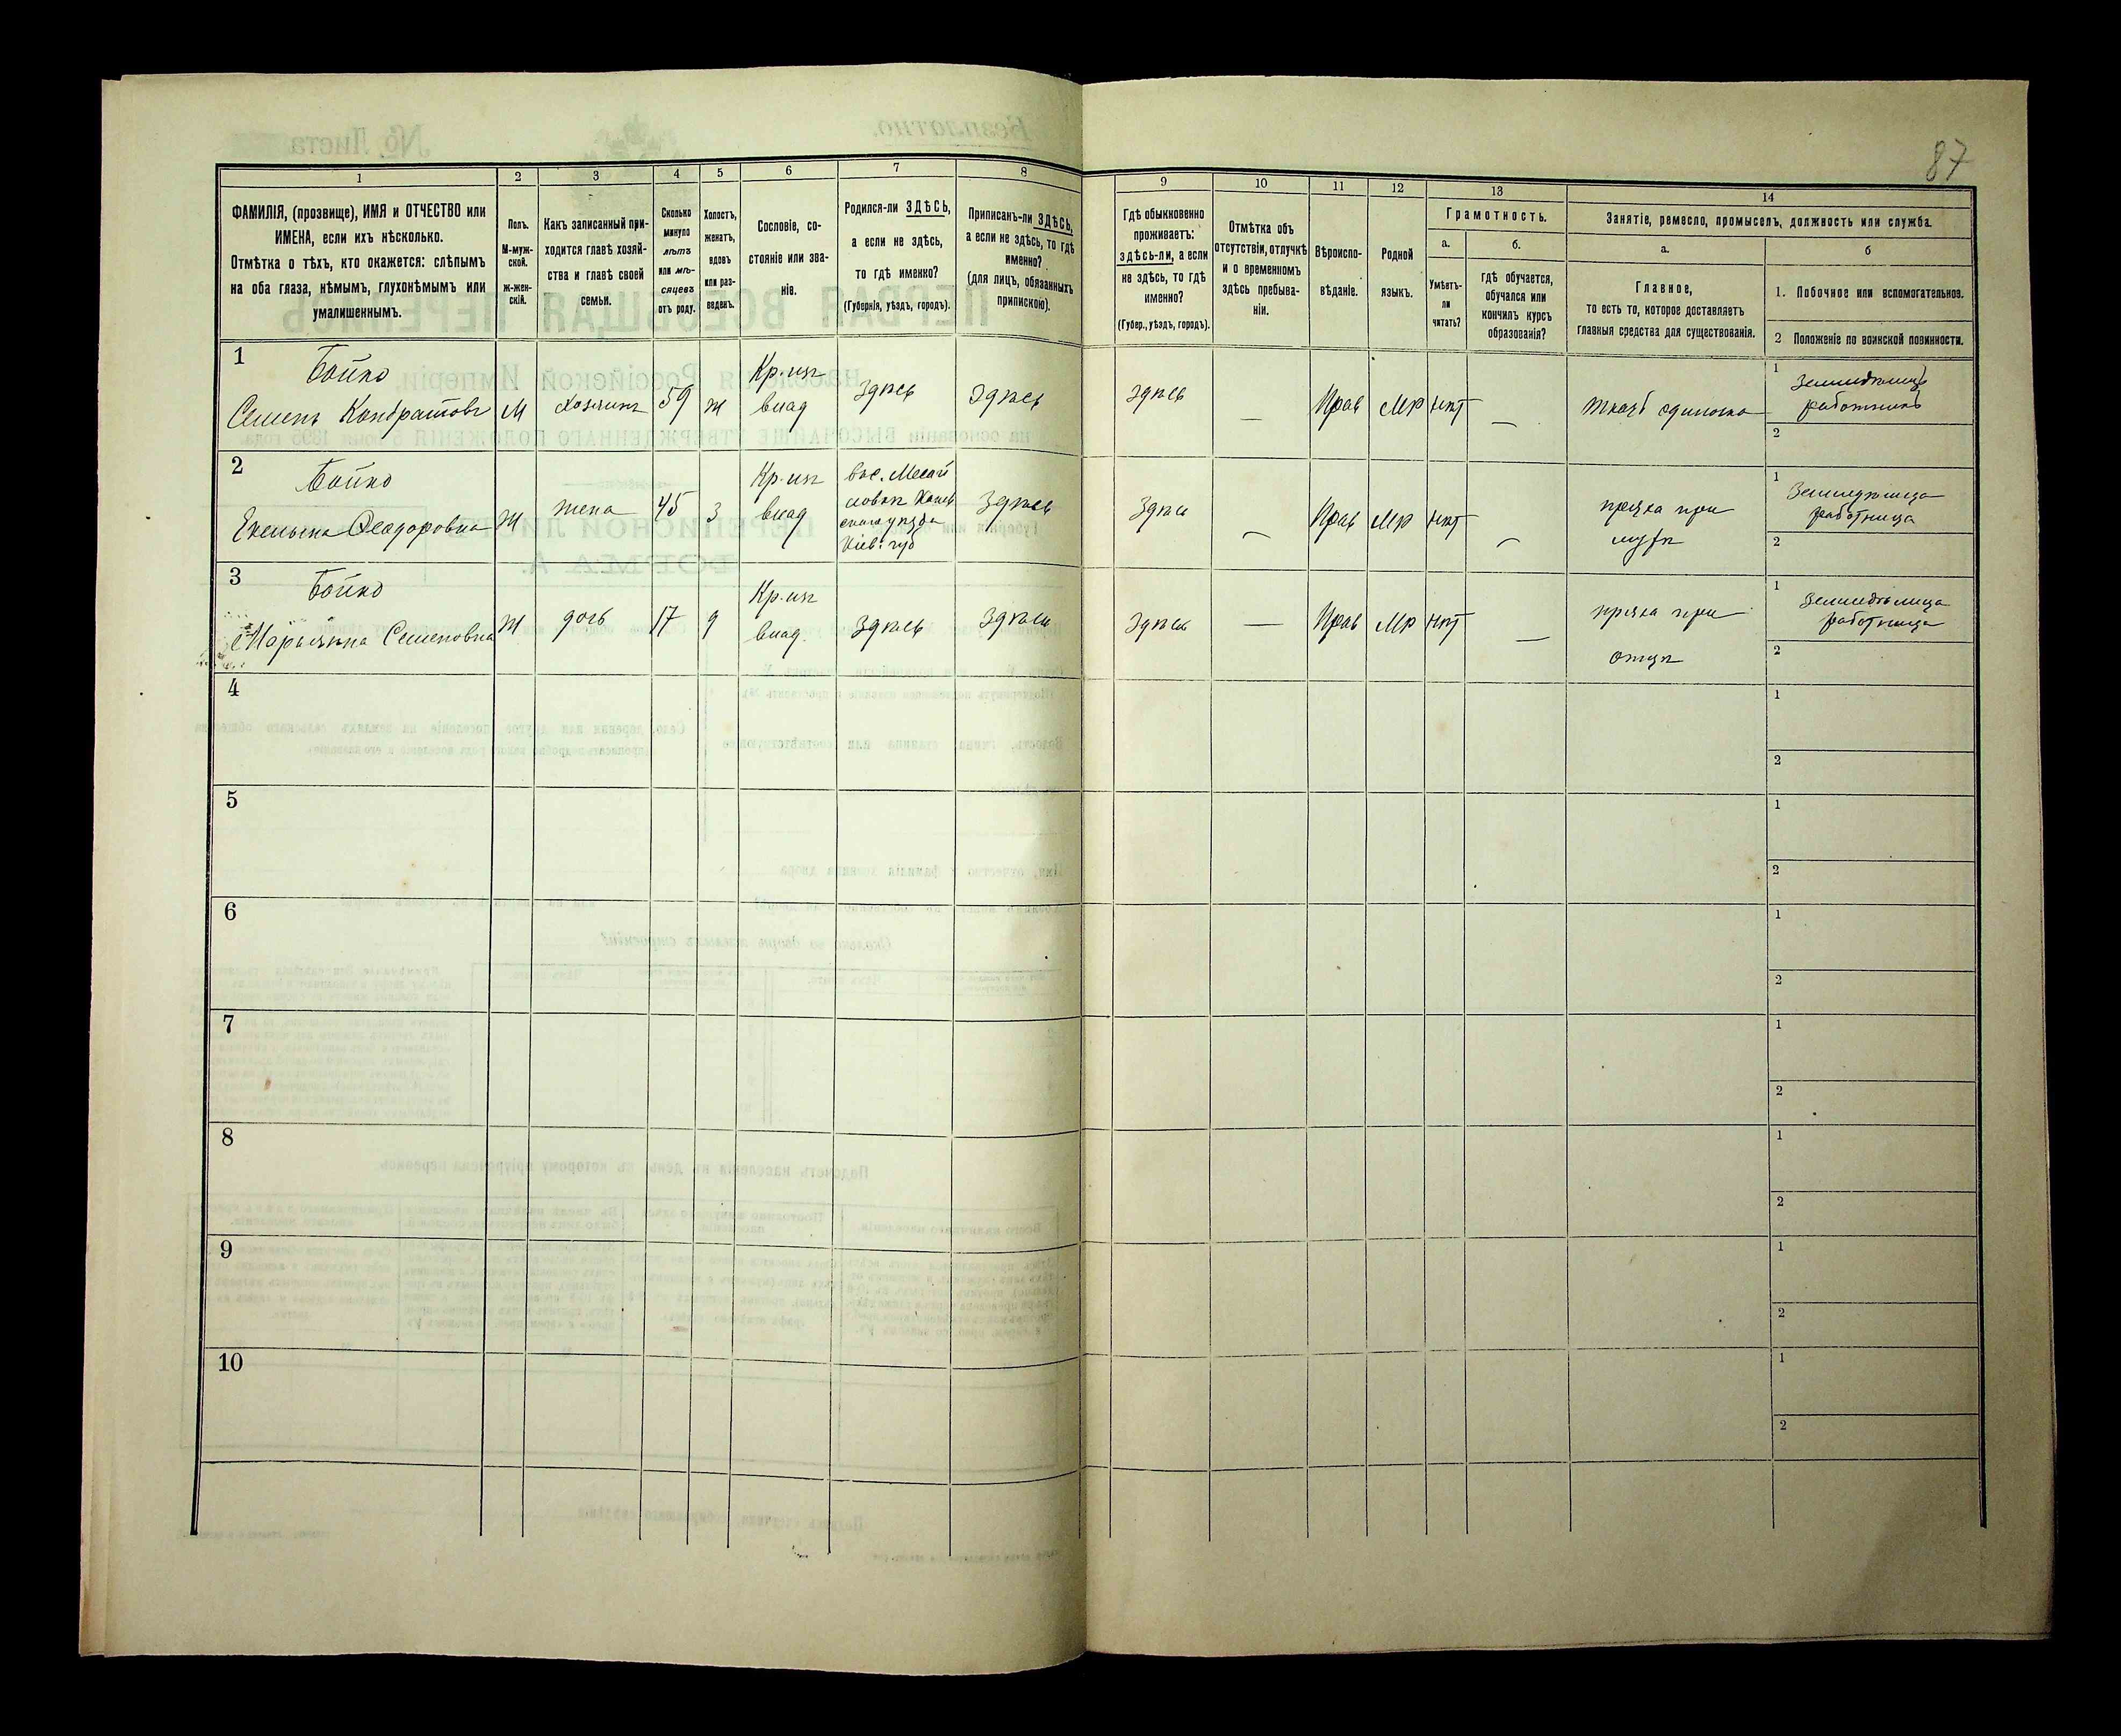 87
1
2
3
4
5
6
7
8
9
10
11
12
13
14
ФАМИЛІЯ, (прозвище), ИМЯ и ОТЧЕСТВО или
ИМЕНА, если ихъ нѣсколько.
Отмѣтка о тѣхъ, кто окажется: слѣпымъ
на оба глаза, нѣмымъ, глухонѣмымъ или
умалишеннымъ.
Полъ.
М-муж-
ской.
ж-жен-
скій.
Какъ записанный при-
ходится главѣ хозяй-
ства и главѣ своей
семьи.
Сколько
минуло
лѣтъ
или мѣ-
сяцевъ
отъ роду.
Холостъ,
женатъ,
вдовъ
или раз-
веденъ.
Сословіе, со-
стояніе или зва-
ніе.
Родился-ли ЗДѢСЬ,
а если не здѣсь,
то гдѣ именно?
(Губернія, уѣздъ, городъ).
Приписанъ-ли ЗДѢСЬ,
а если не здѣсь, то гдѣ
именно?
(для лицъ, обязанныхъ
припискою).
Гдѣ обыкновенно
проживаетъ:
здѣсь-ли, а если
не здѣсь, то гдѣ
именно?
(Губер., уѣздъ, городъ).
Отмѣтка объ
отсутствіи, отлучкѣ
и о временномъ
здѣсь пребыва-
ніи.
Вѣроиспо-
вѣданіе.
Родной
языкъ.
Грамотность.
а.
Умѣетъ-
ли
читать?
б.
гдѣ обучается,
обучался или
кончилъ курсъ
образованія?
Занятіе, ремесло, промыселъ, должность или служба.
а.
Главное,
то есть то, которое доставляетъ
главныя средства для существованія.
б
1. Побочное или вспомогательное.
2 Положеніе по воинской повинности.
1
Бойко
Семенъ Кондратовъ
М
хозяинъ
59
ж
Кр. изъ
влад
Здѣсь
Здѣсь
Здѣсь
—
Прав
Мр
нѣт
—
ткачъ одиночка
1
Земледѣлецъ
работникъ
2
2
Бойко
Феодоровна
Ж
жена
45
З
Кр. изъ
влад
уѣзда
Кіев. губ
Здѣсь
Здѣсь
—
Прав
Мр
нѣт
—
пряха при
мужѣ
1
Земледѣлица
работница
2
3
Бойко
Марьяна Семеновна
Ж
дочь
17
д
Кр. изъ
влад.
Здѣсь
Здѣсь
Здѣсь
—
Прав
Мр
нѣт
—
пряха при
отцѣ
1
Земледѣлица
работница
2
4
1
2
5
1
2
6
1
2
7
1
2
8
1
2
9
1
2
10
1
2